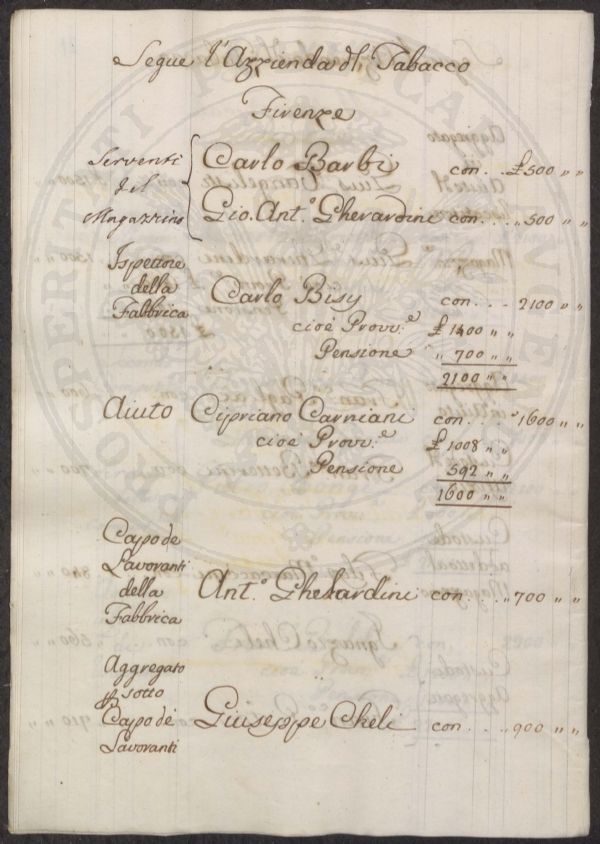 Segue l'Azzienda del Tabacco
Firenze
Serventi
del
Magazzino
Carlo Barbi con. . £ 500 „ „
Gio. Ant.º Gherardini con. . . „ 500 „ „
Ispettore
della
Fabbrica
Carlo Bisy con. . . . 2100 „ „
cioè Provv.e £ 1400 „ „
Pensione „ 700 „ „
2100 „ „
Aiuto Cipriano Carniani con. . . . 1600 „ „
cioè Provv.e £ 1008 „ „
Pensione 592 „ „
1600 „ „
Capo de
Lavoranti
della
Fabbrica
Ant.º Gherardini con. . . . „ 700 „ „
Aggregato
sotto
Capo de
Lavoranti
Giuseppe Cheli con. . . . „ 900 „ „